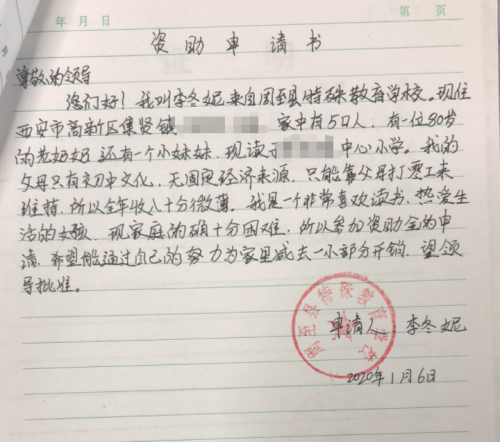 年 月 日 第 页
资助申请书
尊敬的领导
您们好！我叫李冬妮来自周至县特殊教育学校。现住
西安市高新区集贤镇 家中有5口人，有一位80岁
的老奶奶 还有一个小妹妹，现读于 中心小学。我的
父母只有初中文化，无固定经济来源，只能靠父母打零工来
维持，所以全年收入十分微薄。我是一个非常喜欢读书，热爱生
活的女孩，现家庭的确十分困难，所以参加资助金的申
请，希望能通过自己的努力为家里减去一小部分开销，望领
导批准。
周至县特殊教育学校
申请人：李冬妮
2020年1月6日